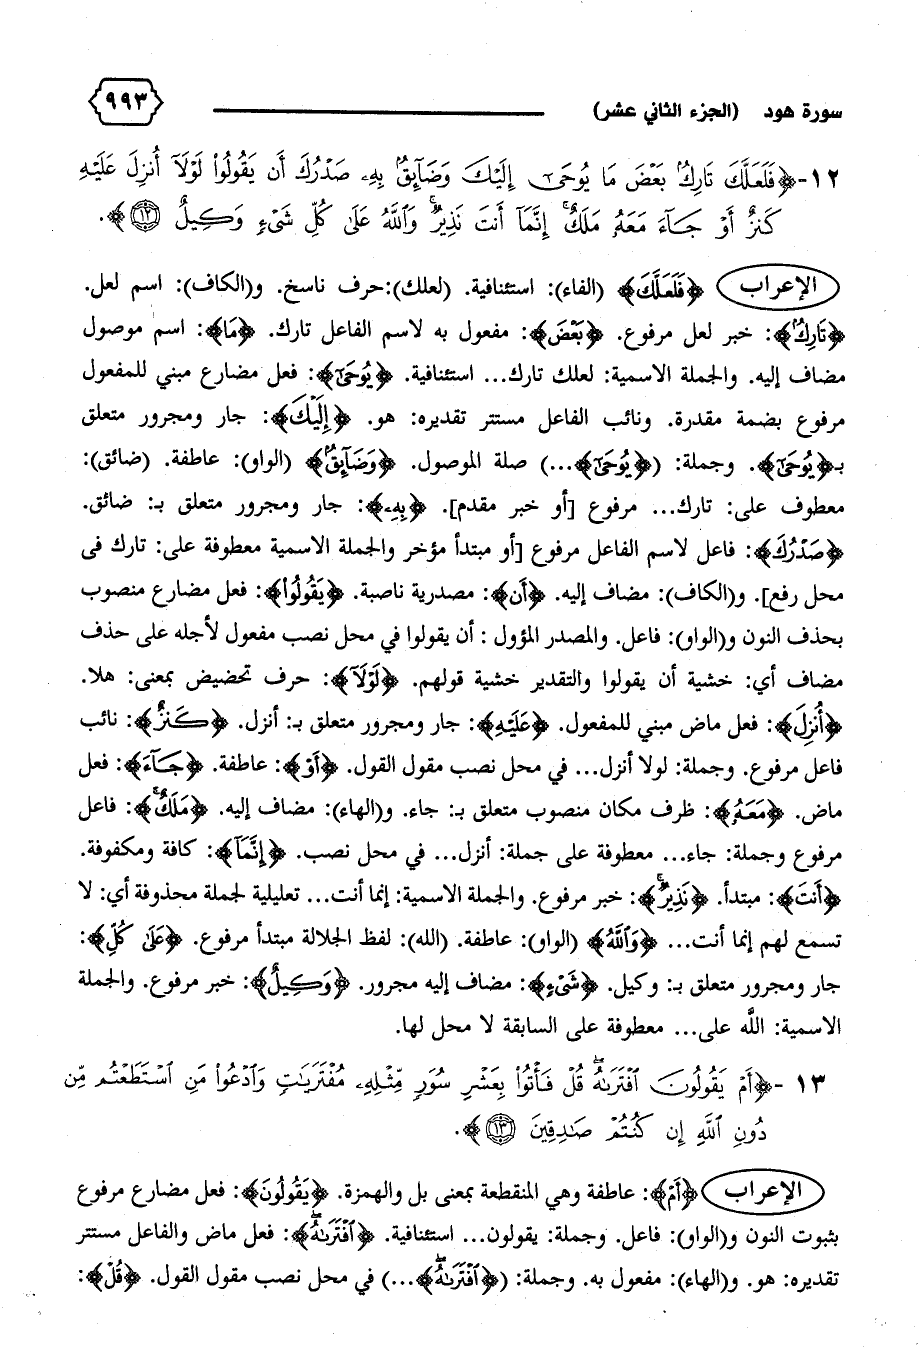 سورة هود (الجزء الثاني عشر) ٩٩٣
١٢- ﴿فَلَعَلَّكَ تَارِكٌۢ بَعْضَ مَا يُوحَىٰٓ إِلَيْكَ وَضَآئِقٌۢ بِهِۦ صَدْرُكَ أَن يَقُولُوا۟ لَوْلَآ أُنزِلَ عَلَيْهِ
كَنزٌ أَوْ جَآءَ مَعَهُۥ مَلَكٌ ۚ إِنَّمَآ أَنتَ نَذِيرٌ ۚ وَٱللَّهُ عَلَىٰ كُلِّ شَىْءٍ وَكِيلٌ ١٢﴾.
الإعراب ﴿فَلَعَلَّكَ﴾ (الفاء): استئنافية. (لعلك):حرف ناسخ. و(الكاف): اسم لعل.
﴿تَارِكٌۢ﴾: خبر لعل مرفوع. ﴿بَعْضَ﴾: مفعول به لاسم الفاعل تارك. ﴿مَا﴾: اسم موصول
مضاف إليه. والجملة الاسمية: لعلك تارك... استئنافية. ﴿يُوحَىٰٓ﴾: فعل مضارع مبني للمفعول
مرفوع بضمة مقدرة. ونائب الفاعل مستتر تقديره: هو. ﴿إِلَيْكَ﴾: جار ومجرور متعلق
بـ﴿يُوحَىٰٓ﴾. وجملة: (﴿يُوحَىٰٓ﴾...) صلة الموصول. ﴿وَضَآئِقٌۢ﴾ (الواو): عاطفة. (ضائق):
معطوف على: تارك... مرفوع [أو خبر مقدم]. ﴿بِهِۦ﴾: جار ومجرور متعلق بـ: ضائق.
﴿صَدْرُكَ﴾: فاعل لاسم الفاعل مرفوع [أو مبتدأ مؤخر والجملة الاسمية معطوفة على: تارك فى
محل رفع]. و(الكاف): مضاف إليه. ﴿أَن﴾: مصدرية ناصبة. ﴿يَقُولُوا۟﴾: فعل مضارع منصوب
بحذف النون و(الواو): فاعل. والمصدر المؤول : أن يقولوا في محل نصب مفعول لأجله على حذف
مضاف أي: خشية أن يقولوا والتقدير خشية قولهم. ﴿لَوْلَآ﴾: حرف تحضيض بمعنى: هلا.
﴿أُنزِلَ﴾: فعل ماض مبني للمفعول. ﴿عَلَيْهِ﴾: جار ومجرور متعلق بـ: أنزل. ﴿كَنزٌ﴾: نائب
فاعل مرفوع. وجملة: لولا أنزل... في محل نصب مقول القول. ﴿أَوْ﴾: عاطفة. ﴿جَآءَ﴾: فعل
ماض. ﴿مَعَهُۥ﴾: ظرف مكان منصوب متعلق بـ: جاء. و(الهاء): مضاف إليه. ﴿مَلَكٌ ۚ﴾: فاعل
مرفوع وجملة: جاء... معطوفة على جملة: أنزل... في محل نصب. ﴿إِنَّمَآ﴾: كافة ومكفوفة.
﴿أَنتَ﴾: مبتدأ. ﴿نَذِيرٌ ۚ﴾: خبر مرفوع. والجملة الاسمية: إنما أنت... تعليلية لجملة محذوفة أي: لا
تسمع لهم إنما أنت... ﴿وَٱللَّهُ﴾ (الواو): عاطفة. (الله): لفظ الجلالة مبتدأ مرفوع. ﴿عَلَىٰ كُلِّ﴾:
جار ومجرور متعلق بـ: وكيل. ﴿شَىْءٍ﴾: مضاف إليه مجرور. ﴿وَكِيلٌ﴾: خبر مرفوع. والجملة
الاسمية: اللَّه على... معطوفة على السابقة لا محل لها.
١٣ - ﴿أَمْ يَقُولُونَ ٱفْتَرَىٰهُ ۖ قُلْ فَأْتُوا۟ بِعَشْرِ سُوَرٍ مِّثْلِهِۦ مُفْتَرَيَـٰتٍ وَٱدْعُوا۟ مَنِ ٱسْتَطَعْتُم مِّن
دُونِ ٱللَّهِ إِن كُنتُمْ صَـٰدِقِينَ ١٣﴾.
الإعراب ﴿أَمْ﴾: عاطفة وهي المنقطعة بمعنى بل والهمزة. ﴿يَقُولُونَ﴾: فعل مضارع مرفوع
بثبوت النون و(الواو): فاعل. وجملة: يقولون... استئنافية. ﴿ٱفْتَرَىٰهُ ۖ﴾: فعل ماض والفاعل مستتر
تقديره: هو. و(الهاء): مفعول به. وجملة: (﴿ٱفْتَرَىٰهُ ۖ﴾...) في محل نصب مقول القول. ﴿قُلْ﴾: